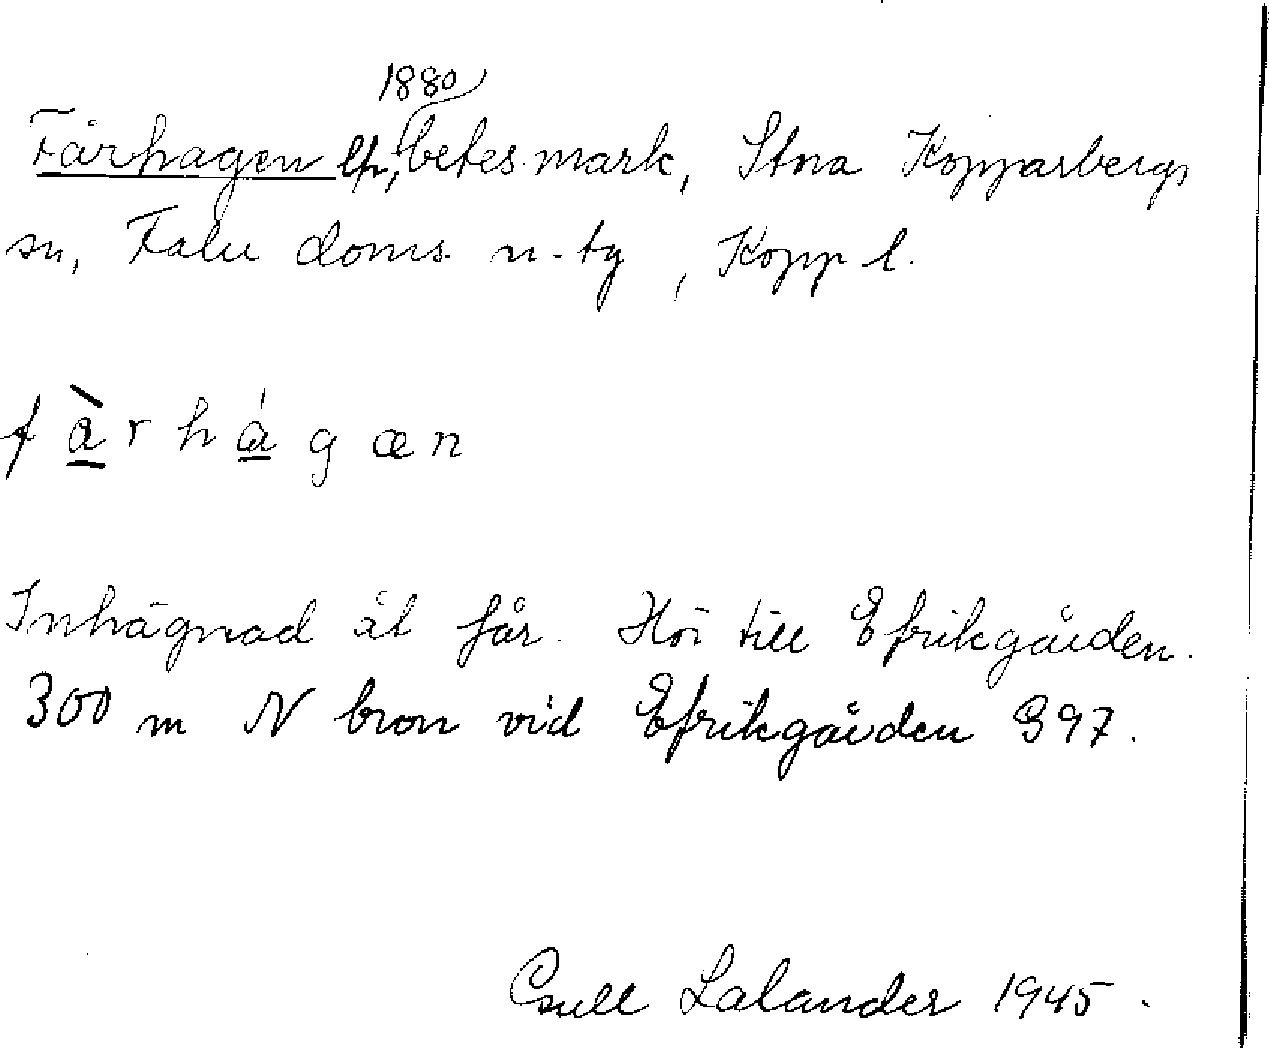 1880
Fårhagen lp, betesmark, Stora Kopparbergs
sn, Falu doms. n. tg, Kopp l.
f å̀ r h á g æ n
Inhägnad åt får. Hör till Efrikgården.
300 m N bron vid Efrikgården 397.
Lalander 1945.